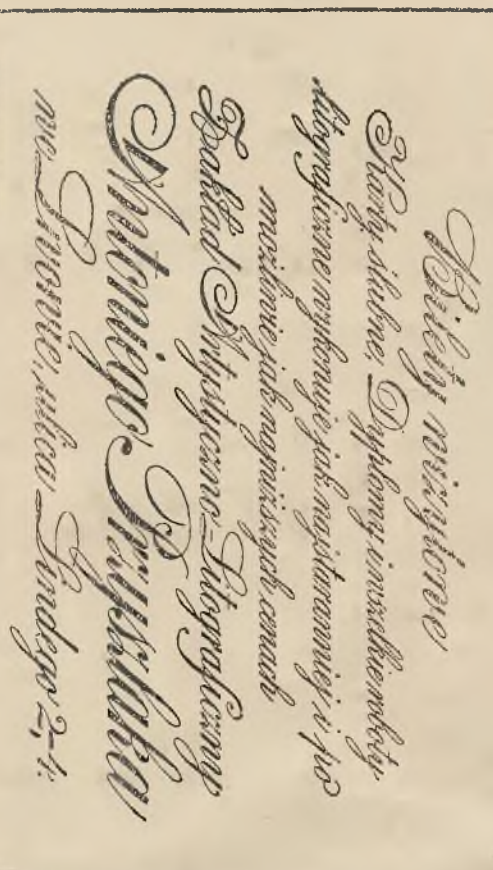 Bilety wizytowe
Karty ślubne, Dyplomy i wszelkie roboty
litograficzne wykonuje jak najstaranniej i po
możliwie jak najniższych cenach
Zakład Artystyczno-Litograficzny
Antoniego Przyszlaka
we Lwowie, ulica Lindego 2-4.